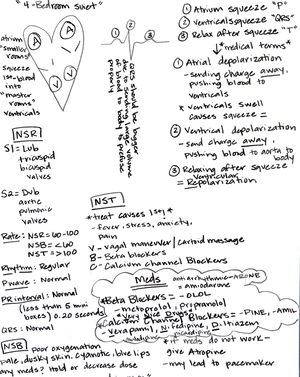 "4-Bedroom Suet"
atrium
"smaller
rooms"
squeeze
1st-blood
into
"master
rooms"
ventricals
A
A
V
V
①
②
③
QRS should be bigger
due to sending large volume
of blood to body to perfuse
properly
① Atrium squeeze "P"
② Ventricals squeeze "QRS"
③ Relax after squeeze "T"
*medical terms*
① Atrial depolarization
- sending charge away,
pushing blood to
ventricals
* ventricals swell
causes squeeze =
② Ventrical depolarization
- send charge away,
pushing blood to aorta to
body
③ Relaxing after squeeze
= Ventricular
Repolarization
NSR
S1 = Lub
tricuspid
bicuspid
valves
S2 = Dub
aortic
pulmonic
valves
Rate: NSR = 60-100
NSB = <60
NST = >100
Rhythm: Regular
P wave: Normal
PR interval: Normal
(less than 5 mini
boxes) 0.20 seconds
QRS: Normal
NST
*treat causes 1st*
- fever, stress, anxiety,
pain
V - vagal maneuver / carotid massage
B - Beta blockers
C - Calcium Channel Blockers
Meds
antiarrhythmic = ARONE
= amiodarone
*Beta Blockers = -OLOL
- metoprolol, propranolol
*Very Nice Drugs*
*Calcium Channel Blockers = -PINE, -AMIL
- Verapamil, Nifedipine, Diltiazem
NSB
Poor oxygenation
pale, dusky skin, cyanotic, blue lips
any meds? Hold or decrease dose
* if meds do not work -
give Atropine
- may lead to pacemaker